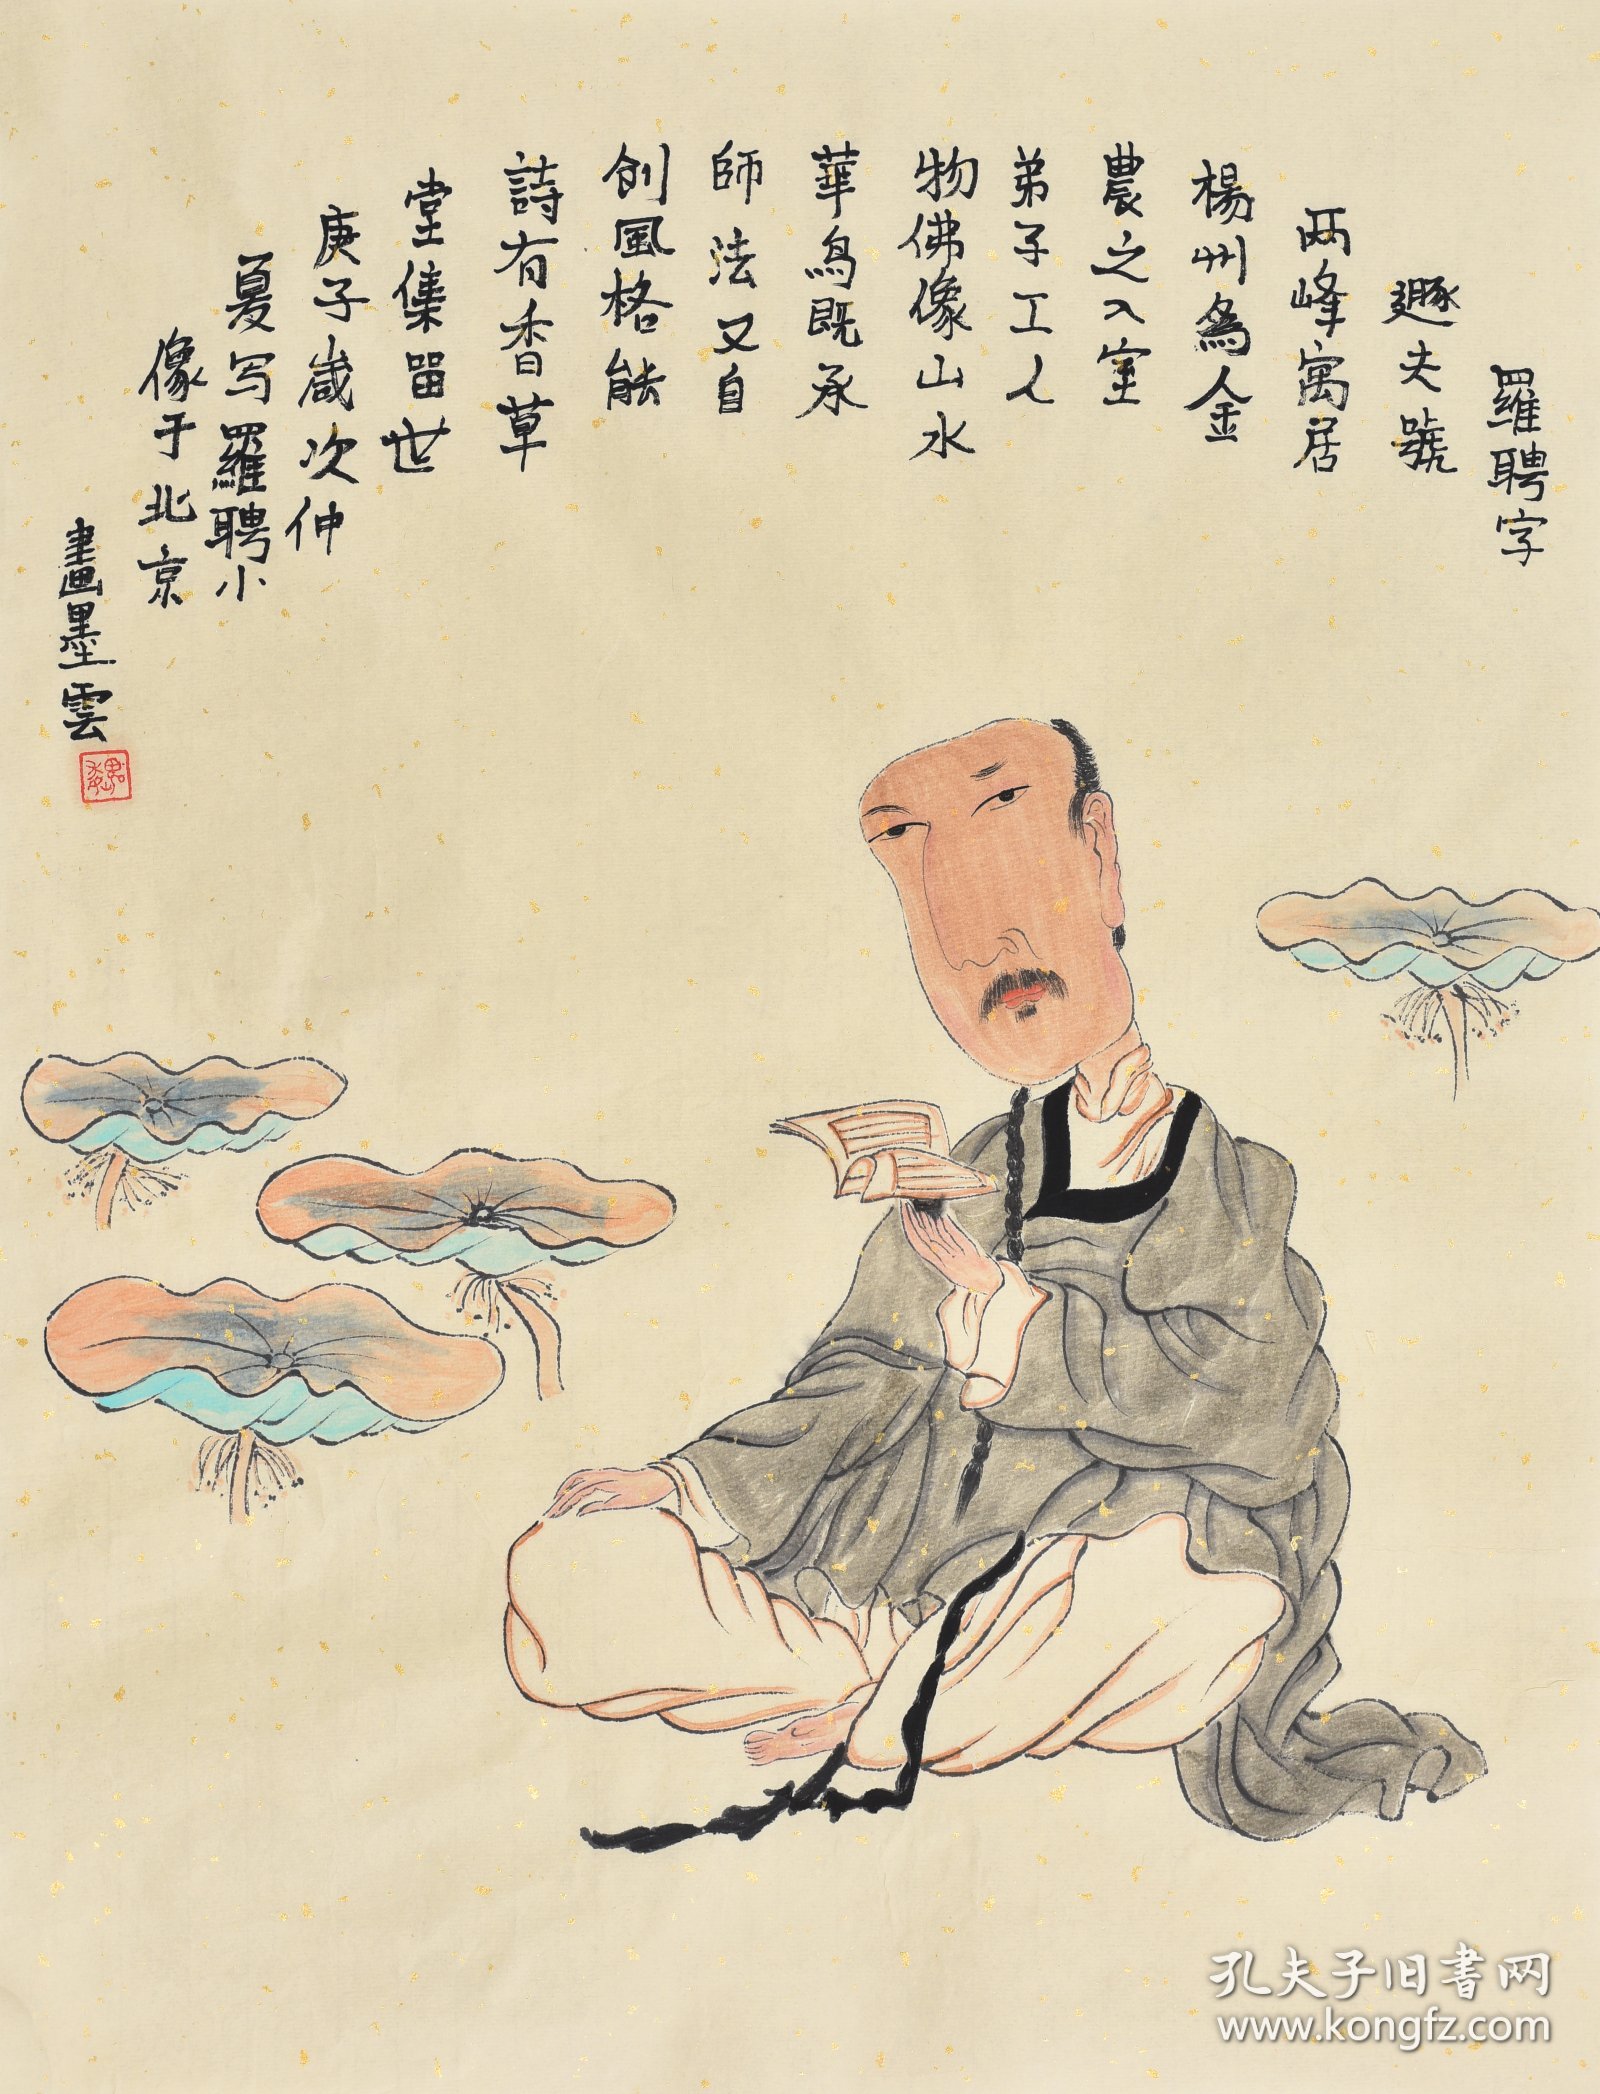 羅聘字
遯夫號
两峰寓居
楊州為金
農之入室
弟子工人
物佛像山水
華鳥既承
師法又自
創風格能
詩有香草
堂集留世
庚子歲次仲
夏写羅聘小
像于北京
畫墨雲
孔夫子旧書网
www.kongfz.com